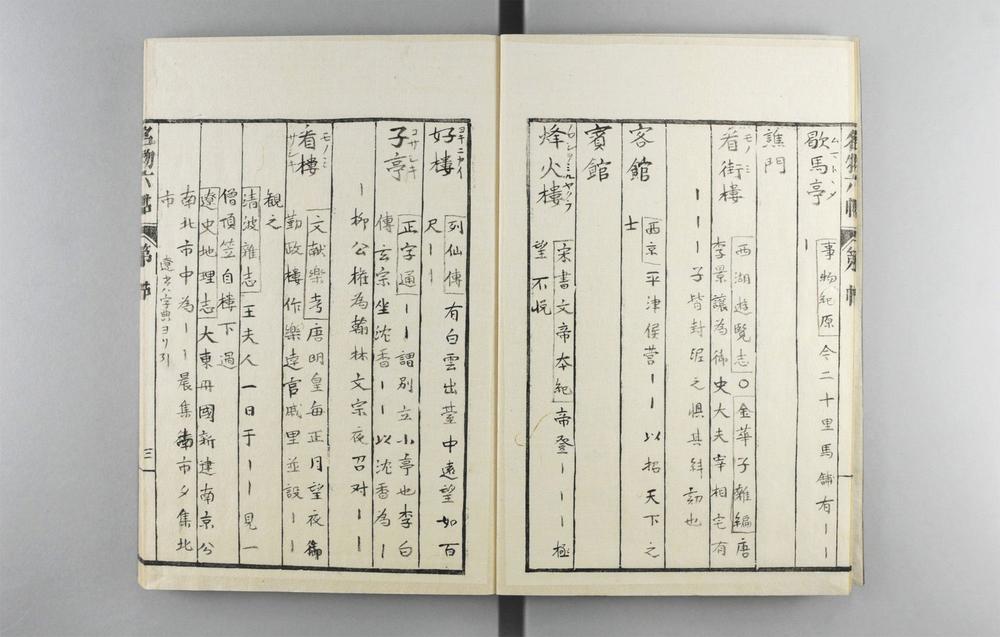 歇馬亭
事物紀原 今二十里馬鋪有ーー
ー
譙門
看街樓
モノミ
西湖遊覧志 〇 金華子雜編 唐
李景讓為御史大夫宰相宅有
ーーー子皆封泥之惧其糾劾也
客館
西京 平津侯営ーー以招天下之
士
賓館
烽火樓
宋書文帝本紀 帝登ーーー極
望不悦
好樓
列仙傳 有白雲出臺中遠望如百
尺ーー
子亭
コザシキ
正字通 ーー謂別立小亭也李白
傳玄宗坐沈香ーー以沈香為ー
ー柳公権為翰林文宗夜召対ーー
看樓
モノミ
サジキ
文献楽考 唐明皇毎正月望夜御
勤政樓作樂達官戚里並設ーー
観之
清波雜志 王夫人一日于ーー見一
僧頂笠自樓下過
遼史地理志 大東丹國新建南京公
南北市中為ーー晨集南市夕集北
市
名物六帖
第 帖
三